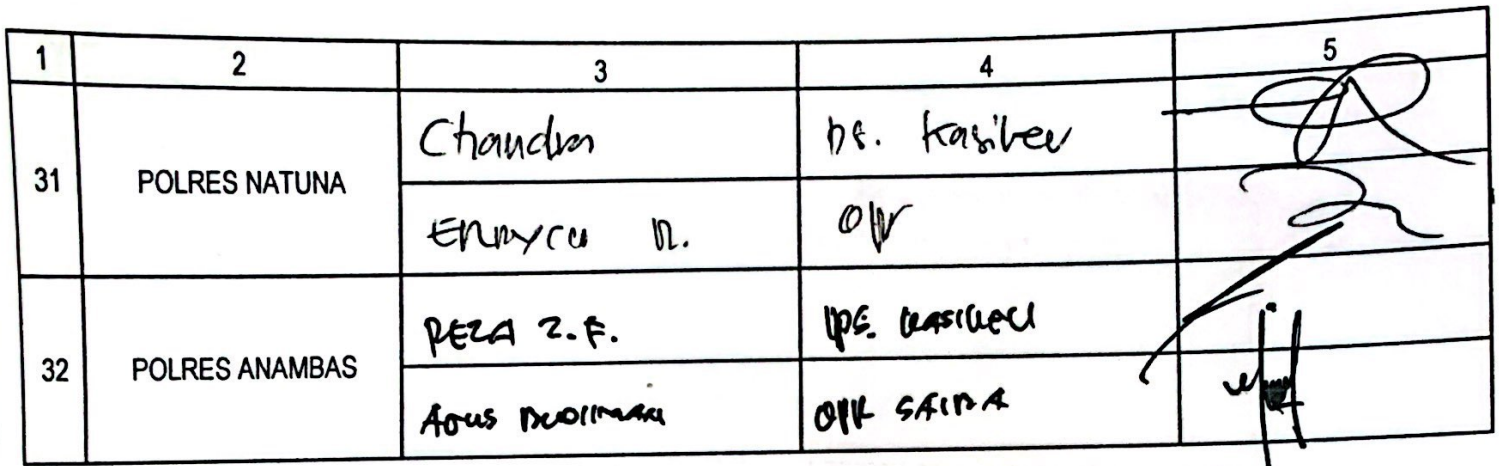 1 2 3 4 5
31 POLRES NATUNA Chandra Ps. Kasikeu
Ennycu N. OPR
32 POLRES ANAMBAS REZA Z.F. PS. KASIKEU
Agus Budiman OPR SAIBA